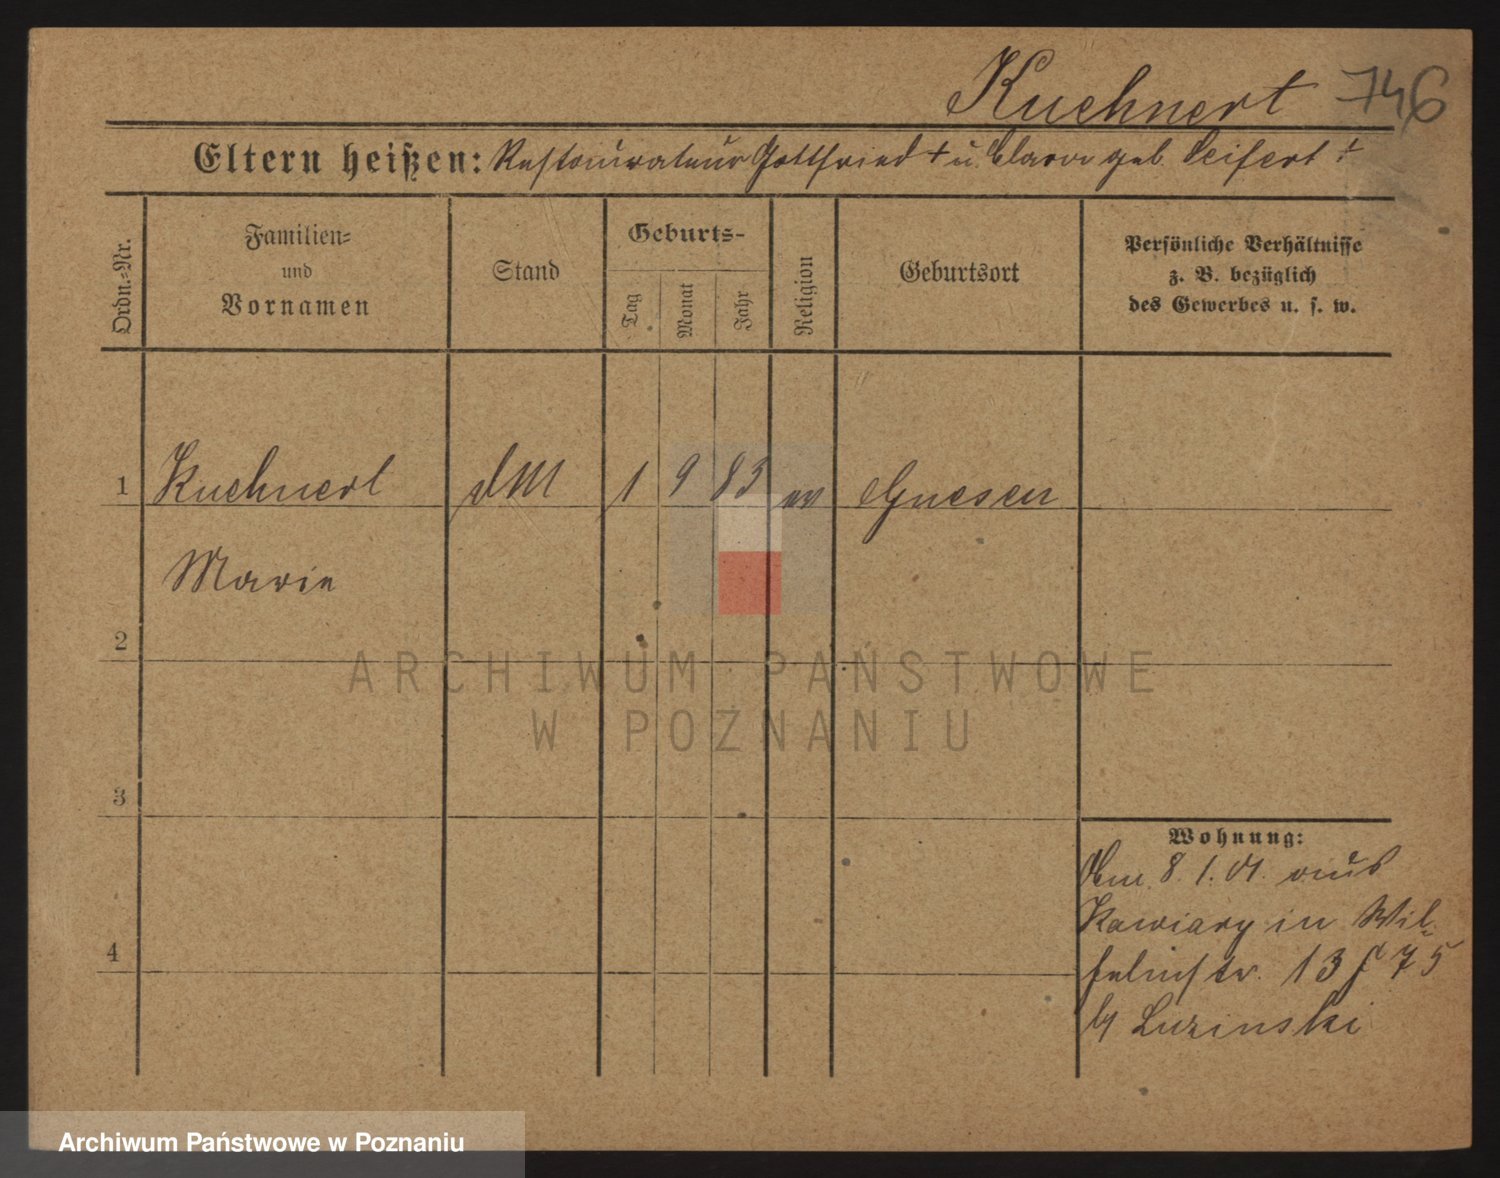 Kuehnert 746
Eltern heißen: Restaurateur Gottfried † u. Clara geb. Seifert †
Ordn.-Nr.
Familien-
und
Vornamen
Stand
Geburts-
Tag
Monat
Jahr
Religion
Geburtsort
Persönliche Verhältnisse
z. B. bezüglich
des Gewerbes u. s. w.
1 Kuehnert dM 1 9 83 ev Gnesen
Marie
2
ARCHIWUM PAŃSTWOWE
W POZNANIU
3
Wohnung:
8. 1. 01. aus
Kawiary in Wil-
4
helmstr. 13 75
by Luzinski
Archiwum Państwowe w Poznaniu